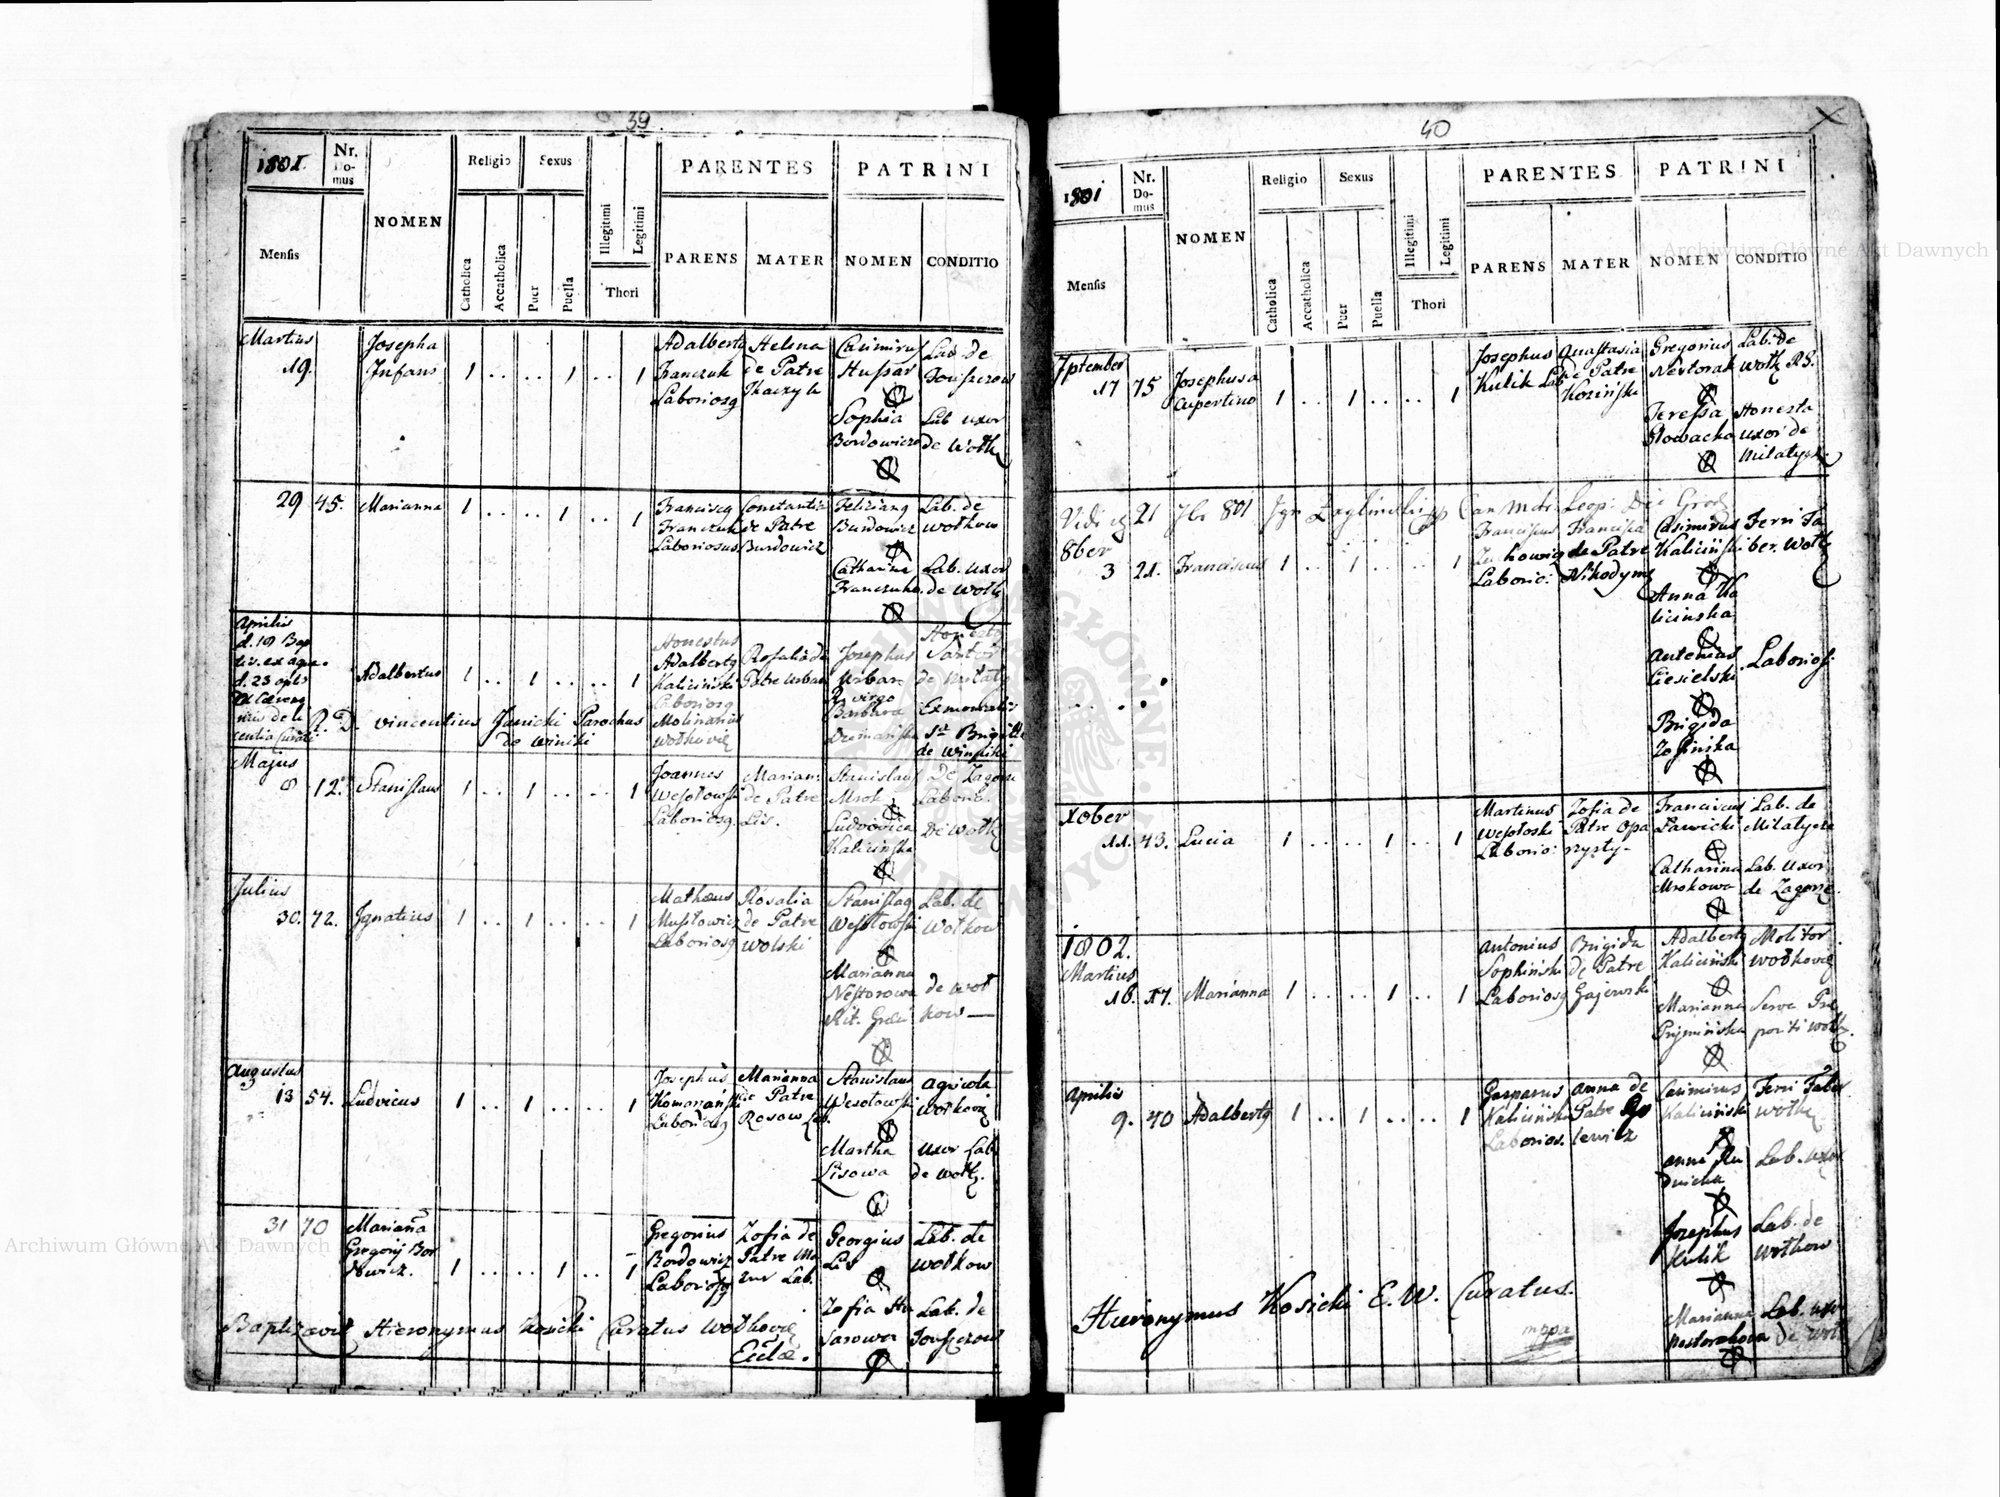 39
1801.
Nr. Domus
NOMEN
Religio
Sexus
Illegitimi
Legitimi
PARENTES
PATRINI
Mensis
Catholica
Accatholica
Puer
Puella
Thori
PARENS
MATER
NOMEN
CONDITIO
Martius
19.
Josepha
Infans
1 .. .. 1 .. 1
Adalbertq
Franczuk
Laboriosq
Helena
de Patre
Tkaczyk
Casimirus
Hussar
Sophia
Bordowiczo
Lab. de
Lab uxor
de Wołk
29 45. Marianna 1 .. .. 1 .. 1
Franciscq
Franczuk
Laboriosus
Constantia
de Patre
Burdowicz
Felicianq
Burdowicz
Catharina
Franczuko.
Lab. de
Wołkow
Lab. uxor
de Wołk
Aprilis
Adalbertus 1 .. 1 .. .. 1
Honestus
Adalbertq
Kaliciński
Laboriosq
Molinarius
Wołkovię
Rosalia de
Patre Urban
Josephus
Urban
virgo
Barbara
Sartor
R. D. Vincentius Janicki Parochus
de Winiki
St Brigitte
de Winniki
Majus
8 12. Stanislaus 1 .. 1 .. .. 1
Joannes
Wesołowski
Laboriosq.
Mariana
de Patre
Lis.
Stanislaus
Mrok
Ludovica
Kalicińska
De Zagorze
Laborio.
De Wołk
Julius
30. 72. Ignatius 1 .. 1 .. .. 1
Mathæus
Musłowicz
Laboriosq
Rosalia
de Patre
Wolski
Stanislaq
Wesołowski
Marianna
Nestorowa
Rit. Græci
Lab. de
Wołkow
de Woł
kow
Augustus
13 54. Ludvicus 1 .. 1 .. .. 1
Josephus
Komarański
Laboriosq
Marianna
de Patre
Rosow Lab.
Stanislaus
Wesołowski
Martha
Lisowa
agricola
Wołkovię
uxor Lab.
de Wołk.
31 70 Marianna
Gregorij Bor
dowicz. 1 .. .. 1 .. 1
Gregorius
Bordowicz
Laboriosq
Zofia de
Patre Ma
zur Lab.
Georgius
Lis
Zofia Hu
sarowa
Lab. de
Wołkow
Lab. de
Baptizavit Hieronymus Kosicki Curatus Wołkovię
Eccłæ.
40
1801
Nr. Domus
NOMEN
Religio
Sexus
Illegitimi
Legitimi
PARENTES
PATRINI
Mensis
Catholica
Accatholica
Puer
Puella
Thori
PARENS
MATER
NOMEN
CONDITIO
7ptember
17 75 Josephus a
Cupertino 1 .. 1 .. .. 1
Josephus
Kulik Lab.
Anastasia
de Patre
Koziński
Gregorius
Nestorak
Teressa
Głowacka
Lab. de
Wołk R.G.
Honesta
uxor de
Milatycz
21 7br 801
8ber
3 21. Franciscus 1 .. 1 .. .. 1
Franciscus
Laborio:
Francisca
de Patre
Nikodymę
Casimirus
Kaliciński
Anna Ka
licinska
Antonius
Ciesielski
Brigida
Zofinska
Ferri Fa
ber. Wołk
Laborios:
Xober
11. 43. Lucia 1 .. .. 1 .. 1
Martinus
Wesołoski
Laborio:
Zofia de
Patre Opa
rzysty-
Franciscus
Ławicki
Catharina
Mrokowa
Lab. de
Milatycze
Lab. uxor
de Zagorze.
1802.
Martius
16. 17. Marianna 1 .. .. 1 .. 1
Antonius
Sophiński
Laboriosq
Brigida
de Patre
Gajewski
Adalbertq
Kaliciński
Marianna
Molitor
Wołkovię
Serva Præ
positi Wołk.
Aprilis
9. 40 Adalbertq 1 .. 1 .. .. 1
Gasparus
Kaliciński
Laborios.
Anna de
Patre
lewicz
Casimirus
Kaliciński
Anna Ru
dnicka
Josephus
Kulik
Marianna
Nestorakowa
Ferri Faber
Wołk
Lab. uxor
Lab. de
Wołkow
Lab. uxor
de Wołk
Hieronymus Kosicki E. W. Curatus.
mppa
Archiwum Główne Akt Dawnych
Archiwum Główne Akt Dawnych